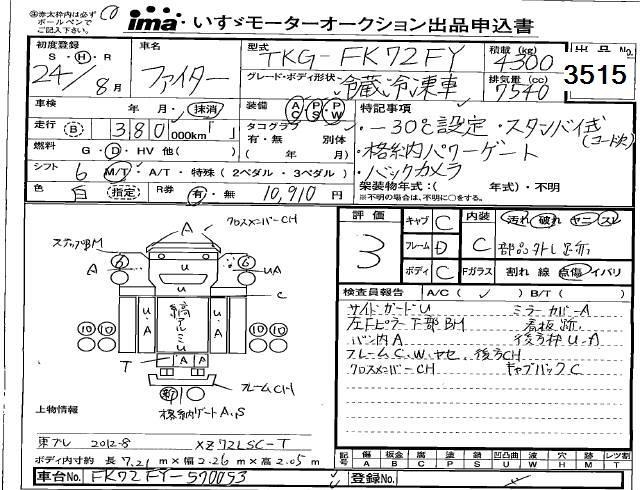 ㊟赤太枠内は必ず
ボールペンで
ご記入下さい
ima いすゞモーターオークション出品申込書
初度登録
S・H・R
24年 8月
車名
ファイター
型式
TKG-FK72FY
積載 (kg)
4300
出品No.
3515
グレード・ボディ形状
冷蔵冷凍車
排気量 (cc)
7540
車検 年 月・抹消
装備 AC PS PW
特記事項
走行 (B) 380,000km
タコグラフ
有・無 別体
( 年 月)
・-30℃設定・スタンバイ式
(コード欠)
・格納パワーゲート
・バックカメラ
燃料 G・D・HV 他( )
シフト 6 M/T・A/T・特殊 (2ペダル・3ペダル)
架装物年式:( 年式)・不明
※不明の場合は、不明に○をする。
色 白 (指定) R券 有・無 10,910円
クロスメンバーCH
A
ステップBM
A
6
6
UA
U
C
U・A
縞アルミU
U・A
10 10
10 10
T
A A
フレームCH
格納ゲートA,S
評価
3
キャブ C
フレーム D
ボディ C
内装 C
汚れ 破れ ヤニ スレ
部品外し跡
Fガラス 割れ 線 点傷 イバリ
検査員報告 A/C(✓) B/T( )
サイドガードU ミラーカバーA
左Fピラー下部BM 看板跡
バン内A 後方枠U・A
フレームC、W、ヤセ、後方CH
クロスメンバーCH キャブバックC
上物情報
東プレ 2012-8 XZ72LSC-T
ボディ内寸約 長7.21m×幅2.26m×高2.05m
記号 傷A 板金B 腐C 塗P 錆S 凹凸曲U 波W 穴H 跡M 痕T レツ割
車台No. FK72FY-570053
登録No.